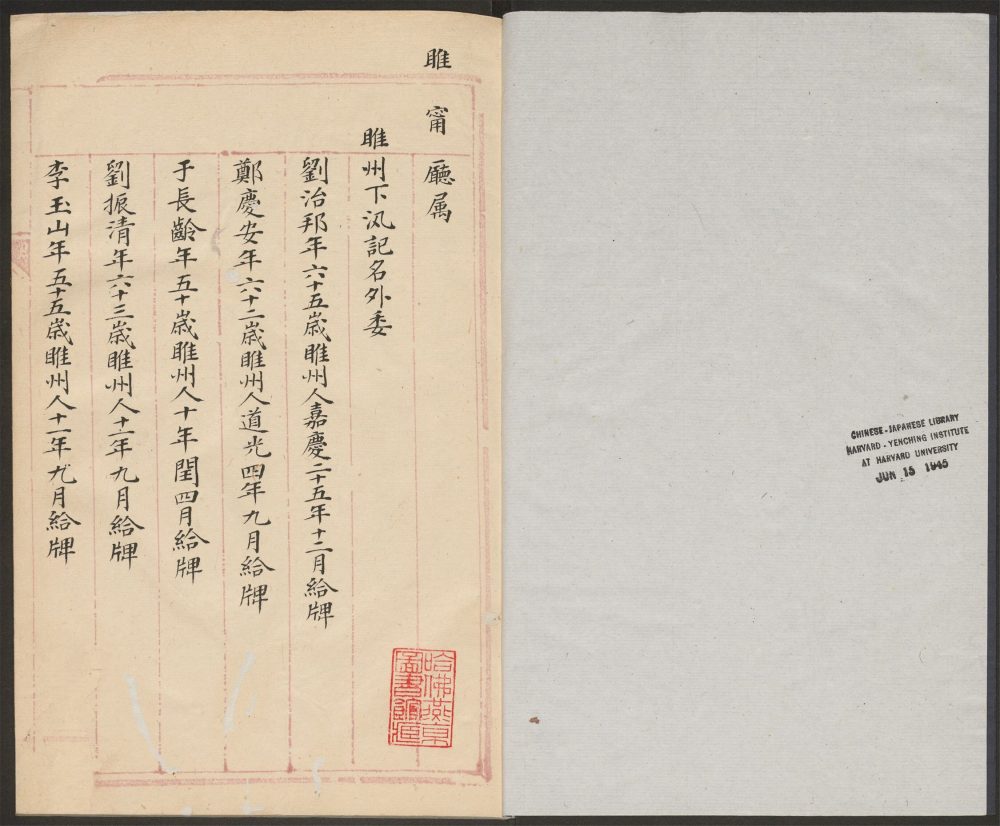 睢甯廳属
睢州下汛記名外委
劉治邦年六十五歲睢州人嘉慶二十五年十二月給牌
鄭慶安年六十二歲睢州人道光四年九月給牌
于長齡年五十歲睢州人十年閏四月給牌
劉振清年六十三歲睢州人十一年九月給牌
李玉山年五十五歲睢州人十一年九月給牌
哈佛燕京
圖書館藏
CHINESE-JAPANESE LIBRARY
HARVARD-YENCHING INSTITUTE
AT HARVARD UNIVERSITY
JUN 15 1945